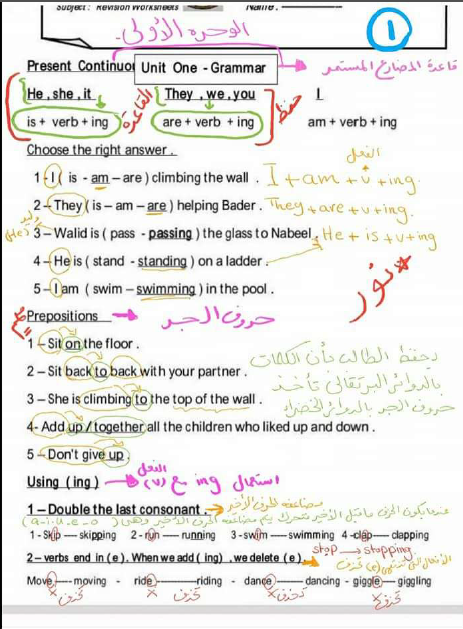 Subject : Revision Worksheets Name :
الوحدة الأولى. 1
Present Continuou Unit One - Grammar قاعدة المضارع المستمر
He , she , it They , we , you I
is + verb + ing القاعدة are + verb + ing حفظ am + verb + ing
Choose the right answer . الفعل
1 - I ( is - am – are ) climbing the wall . I + am + v + ing.
2 – They ( is – am – are ) helping Bader . They + are + v + ing.
(He) 3 – Walid is ( pass - passing ) the glass to Nabeel . He + is + v + ing
4 – He is ( stand - standing ) on a ladder .
5 – I am ( swim – swimming ) in the pool . نور
Prepositions حروف الجر
1 – Sit on the floor .
2 – Sit back to back with your partner . يحفظ الطالب بأن الكلمات
3 – She is climbing to the top of the wall . بالدوائر البرتقالي تأخذ
4- Add up / together all the children who liked up and down . حروف الجر بالدوائر الخضراء
5 – Don't give up .
Using ( ing ) استعمال ing مع (v) الفعل
1 – Double the last consonant . مضاعفة الحرف الأخير
(a-i-u-e-o)
1 - Skip ---- skipping 2 - run ---- running 3 - swim ------ swimming 4 - clap---- clapping
2 – verbs end in ( e ) . When we add ( ing ) .we delete ( e ) . stop → stopping
Move ---- moving - ride ---------riding - dance -------- dancing - giggle ---- giggling
تحذف تحذف تحذف تحذف